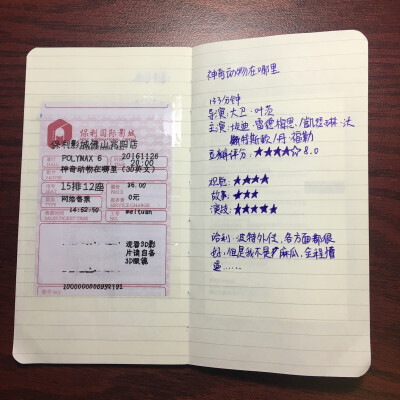 保利国际影城
保利影城佛山
POLYMAX 6 20161126
20:00
神奇动物在哪里(3D英文)
15排12座 36.00
网络售票 0元
14:52:50 weituan
观看3D影
片请自备
3D眼镜
神奇动物在哪里
133分钟
导演:大卫·叶茨
主演:埃迪·雷德梅恩/凯瑟琳·沃
特斯顿/丹·福勒
豆瓣评分:★★★★☆8.0
观感:★★★★
故事:★★★
演技:★★★★★
哈利·波特外传,各方面都很
好,但是我不是麻瓜,全程懵
逼……